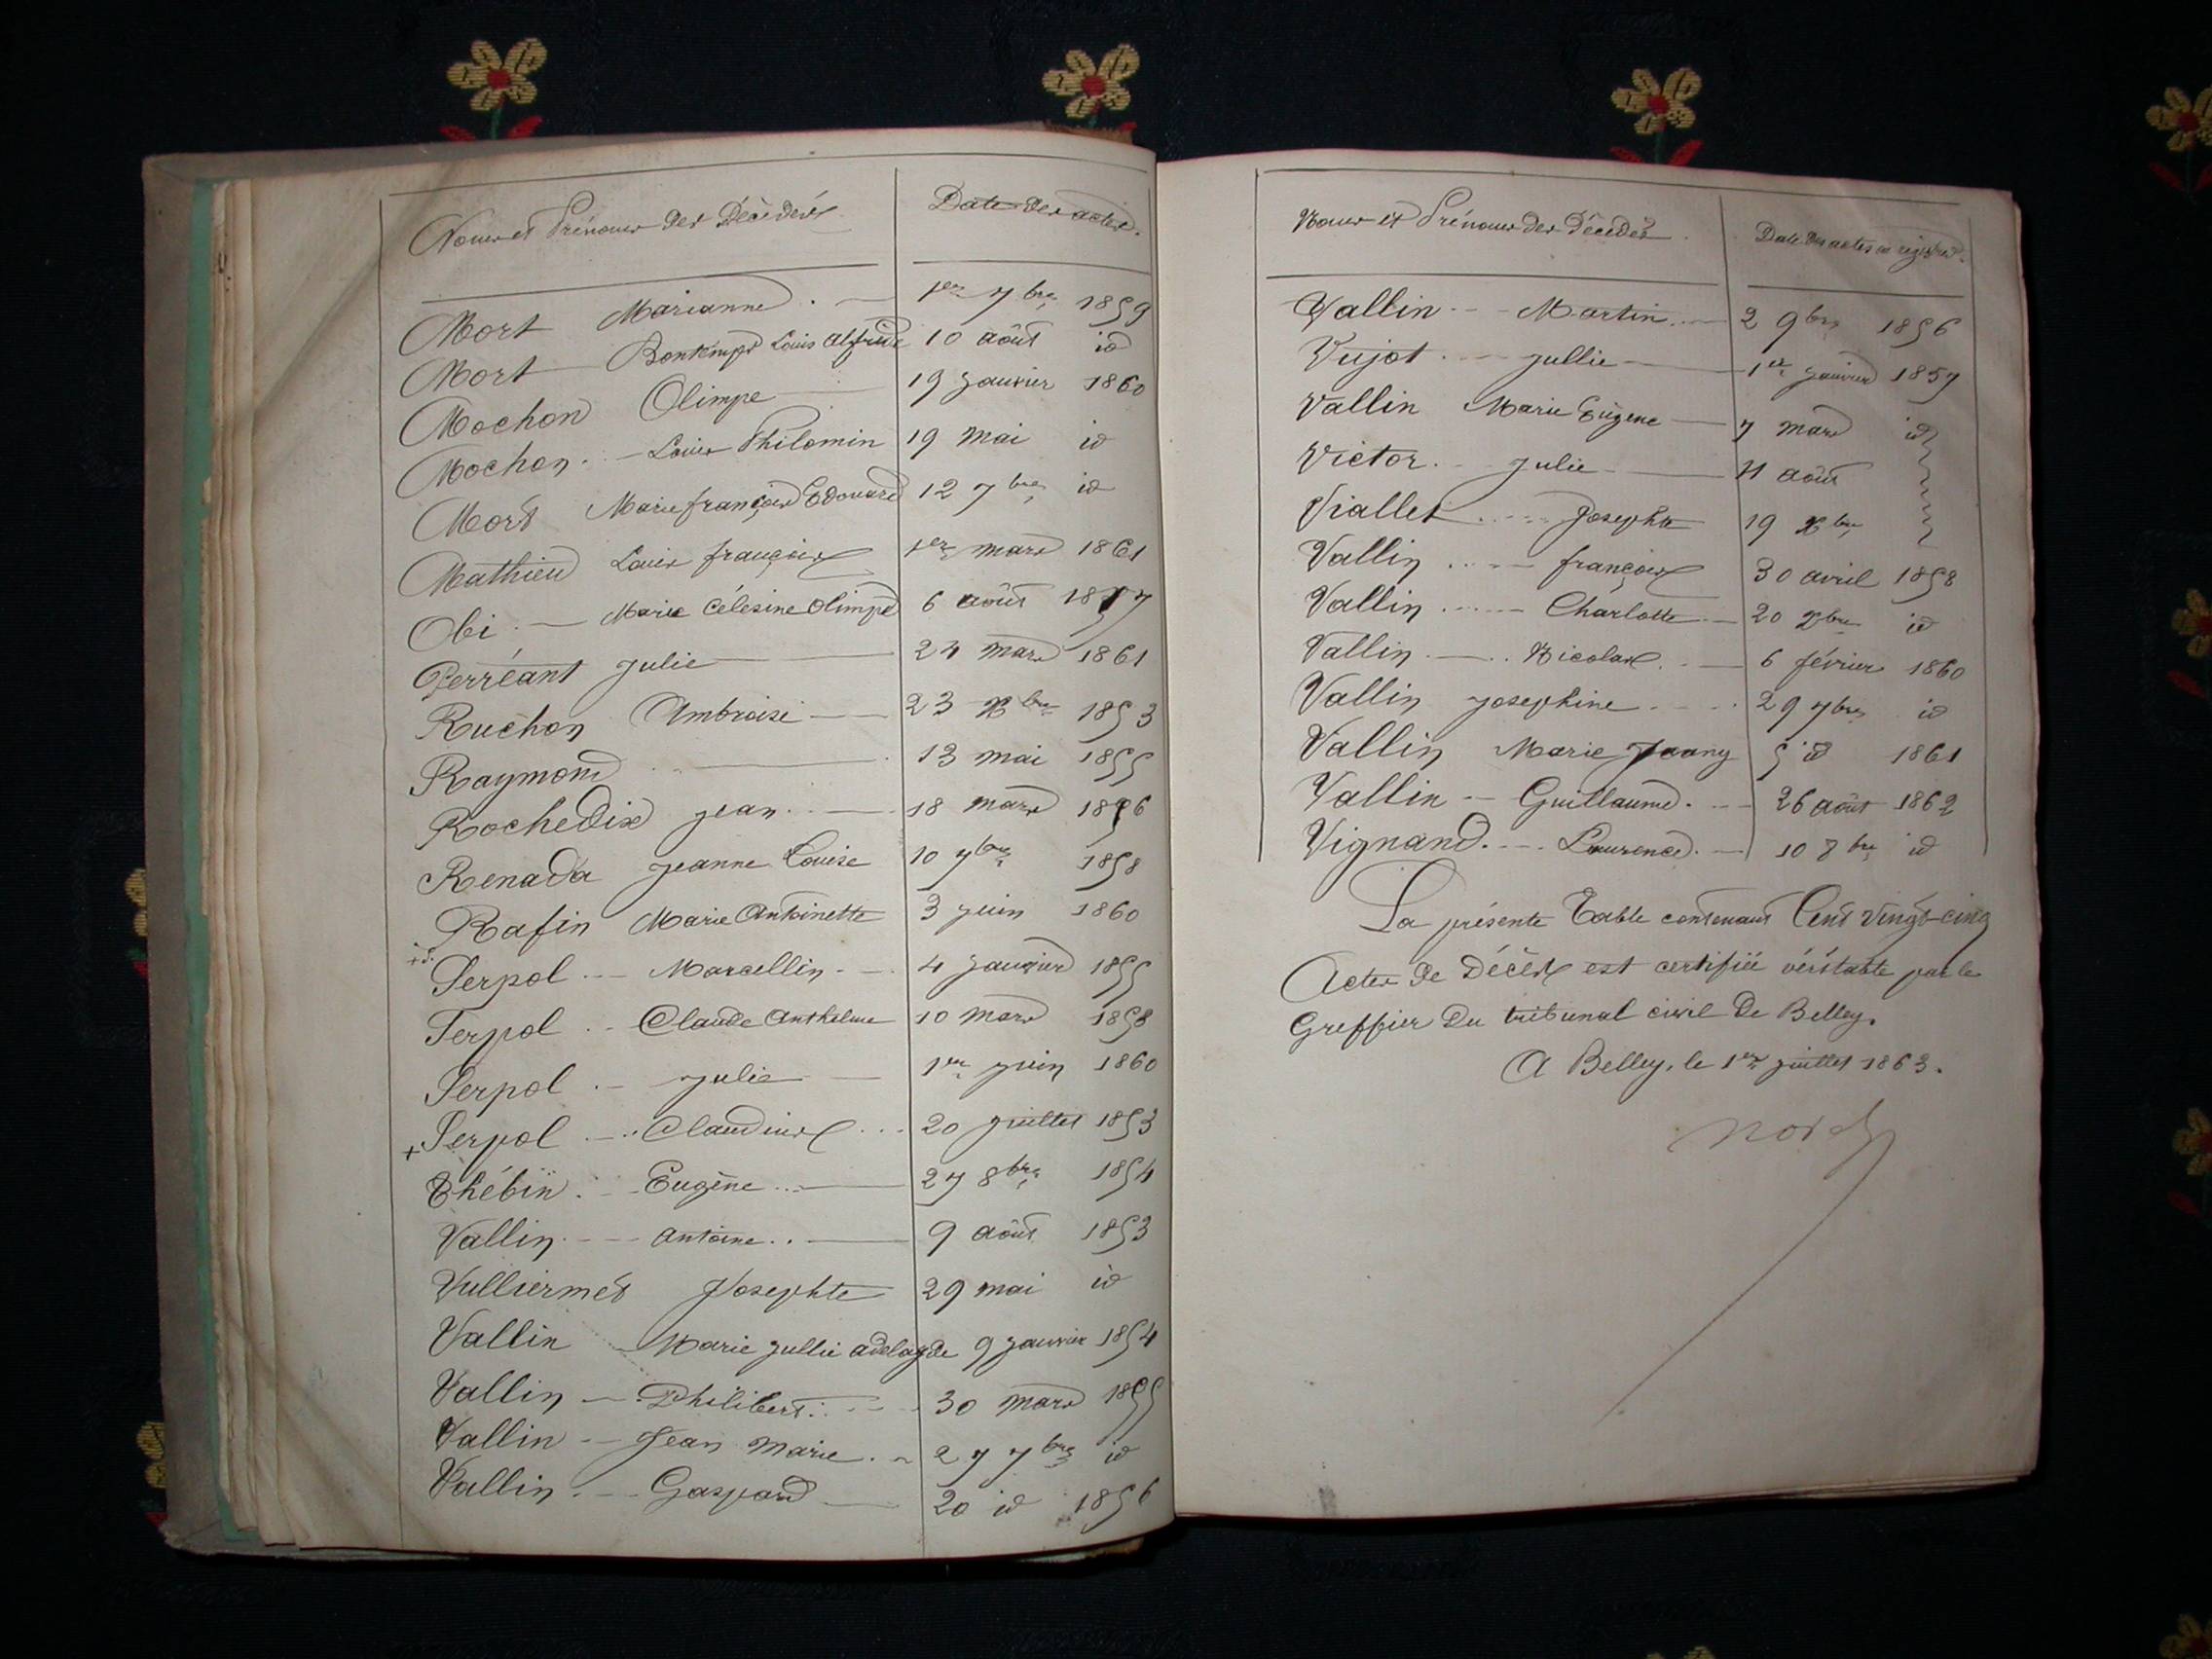 Noms et Prénoms des Décédés Date des actes.
Mort Marianne 1er 7bre 1859
Mort Bontemps Louis Alfride 10 août id
Mochon Olimpe 19 janvier 1860
Mochon Louis Philomin 19 mai id
Mort Marie françois Edouard 12 7bre id
Mathieu Louis françois 1er mars 1861
Obi Marie Célesine Olimpe 6 août 1857
Perréant Julie 24 mars 1861
Ruchon Ambroise 23 Xbre 1853
Raymond 13 mai 1855
Rochedix jean 18 mars 1856
Renada jeanne Louise 10 7bre 1858
Rafin Marie Antoinette 3 juin 1860
Serpol Marcellin 4 janvier 1855
Serpol Claude Anthelme 10 mars 1858
Serpol Julie 1er juin 1860
+ Serpol Claudius 20 juillet 1853
Thébin Eugène 27 8bre 1854
Vallin Antoine 9 août 1853
Vulliermet Josephte 29 mai id
Vallin Marie Jullie adelayde 9 janvier 1854
Vallin Philibert 30 mars 1855
Vallin Jean Marie 27 7bre id
Vallin Gaspard 20 id 1856
Noms et Prénoms des Décédés Date des actes au registre.
Vallin Martin 2 9bre 1856
Vujot Jullie 1er janvier 1857
Vallin Marie Eugène 7 mars id
Victor Julie 11 août
Viallet Josephte 19 Xbre
Vallin françois 30 avril 1858
Vallin Charlotte 20 Xbre id
Vallin Nicolas 6 février 1860
Vallin Josephine 29 7bre id
Vallin Marie Jeany 5 id 1861
Vallin Guillaume 26 août 1862
Vignand Laurence 10 8bre id
La présente Table contenant Cent vingt-cinq
Actes de Décès est certifiée véritable par le
Greffier du tribunal civil de Belley.
A Belley, le 1er juillet 1863.